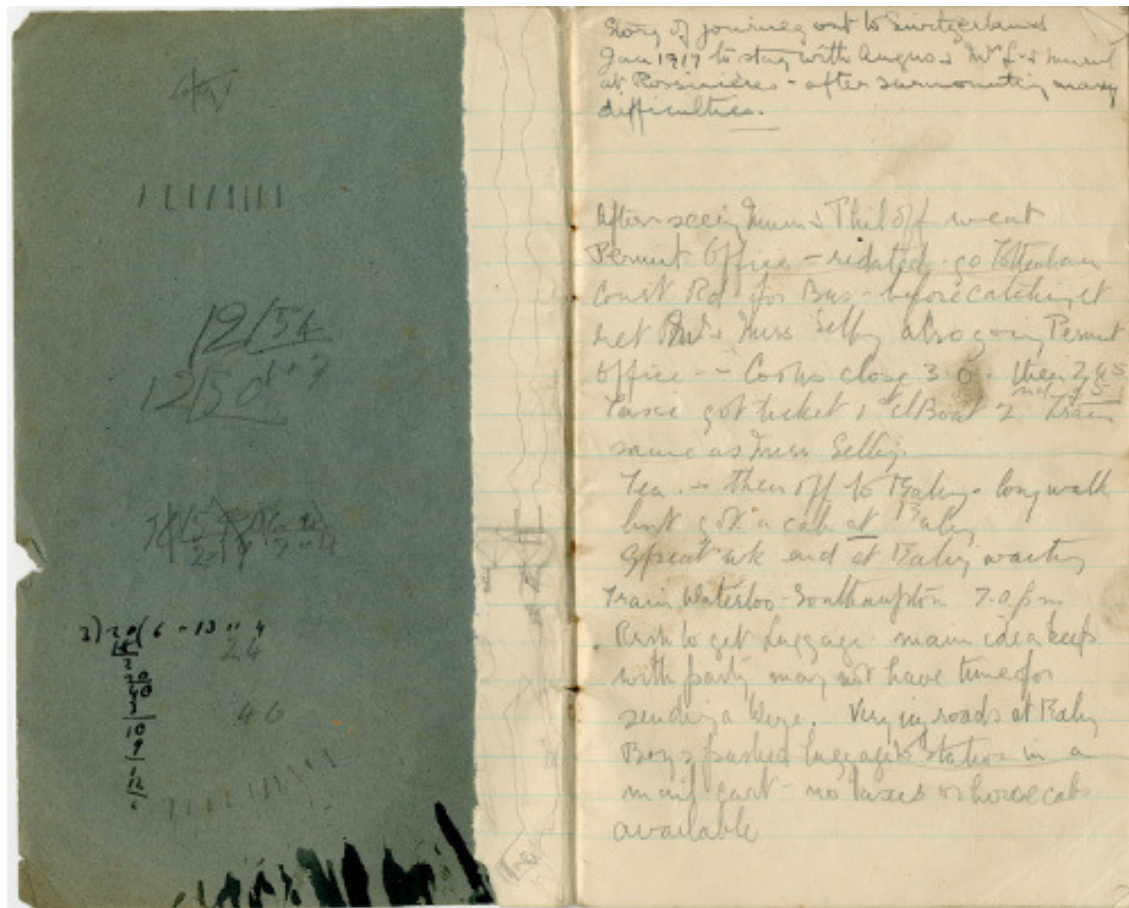 12/54
1+7
12/50
3) 20 ( 6 - 13 " 4
24
20
10
9
12
46
Story of journey out to Switzerland
Jan 1917 to stay with Angus & Mrs L & Muriel
at Rossinières - after surmounting many
difficulties.
After seeing Mum & Phil off went
Permit Office - go Tottenham
Court Rd for Bus - before catching it
met & Miss Selby also going Permit
Office - - Cooks close 3 0 - then 2 45
got ticket 1st cl Boat 2nd Train
same as Miss Selby.
Tea - then off to - long walk
but got a cab at
Great wk end at waiting
Train Waterloo - Southampton 7.0 pm
Rush to get Luggage - main idea keep
with party may not have time for
sending a Wire. Very icy roads at
Boys pushed luggage to station in a
mail cart - no taxes or horse cabs
available